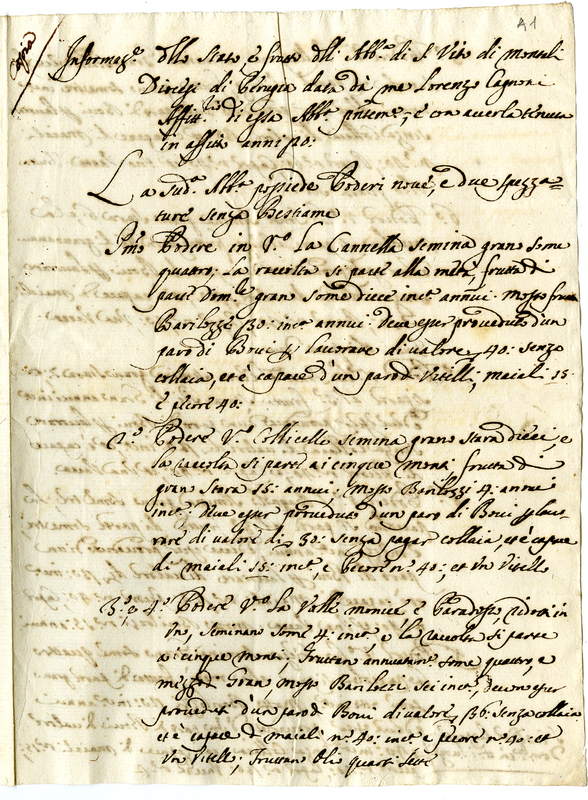 A1
Copia
Informaz.e dello Stato e frutto dell' Abb.a di S. Vito di Montali
Diocesi di Perugia data da me Lorenzo Cagnoni
Affitt.rio di essa Abb.a pntem.e, e con averla tenuta
in affitto anni 20:
La sud.a Abb.a possiede Poderi nove, e due spezza=
ture senza Bestiame
Pmo Podere in V.o La Cannella semina grano some
quattro; La raccolta si parte alla metà, frutta di
parte Dom.le grano some diece inc.e annui. Mosto
Barilozze 30: inc.e annui: Deve esser proveduto d'un
paro di Bovi p lavorare di valore 40: senza
collaia, et è capace d'un paro di Vitelli, maiali 15
e pecore 40:
2.o Podere V.o Collicello semina grano stara dieci, e
la raccolta si parte ai cinque monti, frutta di
gran stara 15: annui, Mosto Barilozzi 4: annui
inc.e; Deve esser proveduto d'un paro di Bovi p lavo=
rare di valore di 30: senza pagar collaia, et è capace
di maiali 15: inc.e, e Pecore n.o 40:, et Un Vitello
3.o, e 4.o Podere V.o La Valle e Paradoso, ridotti in
Uno, seminano some 4: inc.e, e la raccolta si parte
ai cinque monti; Fruttano annuatim.e some quattro, e
mezzo di Grano, mosto Barilozzi sei inc.e, devono esser
proveduti d'un paro di Bovi di valore 36: senza collaia
et è capace di maiali n.o 40: inc.e e pecore n.o 40: et
Un Vitello; Fruttano Olio quarti sette